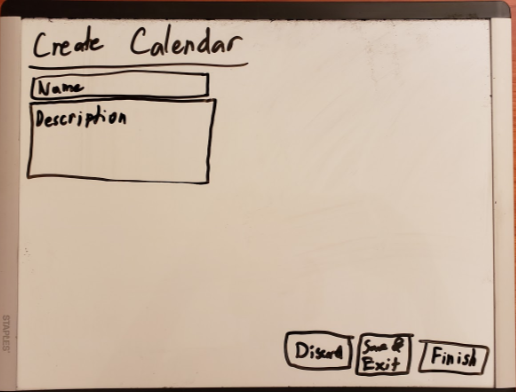 Create Calendar
Name
Description
Discard
Save &
Exit
Finish
STAPLES